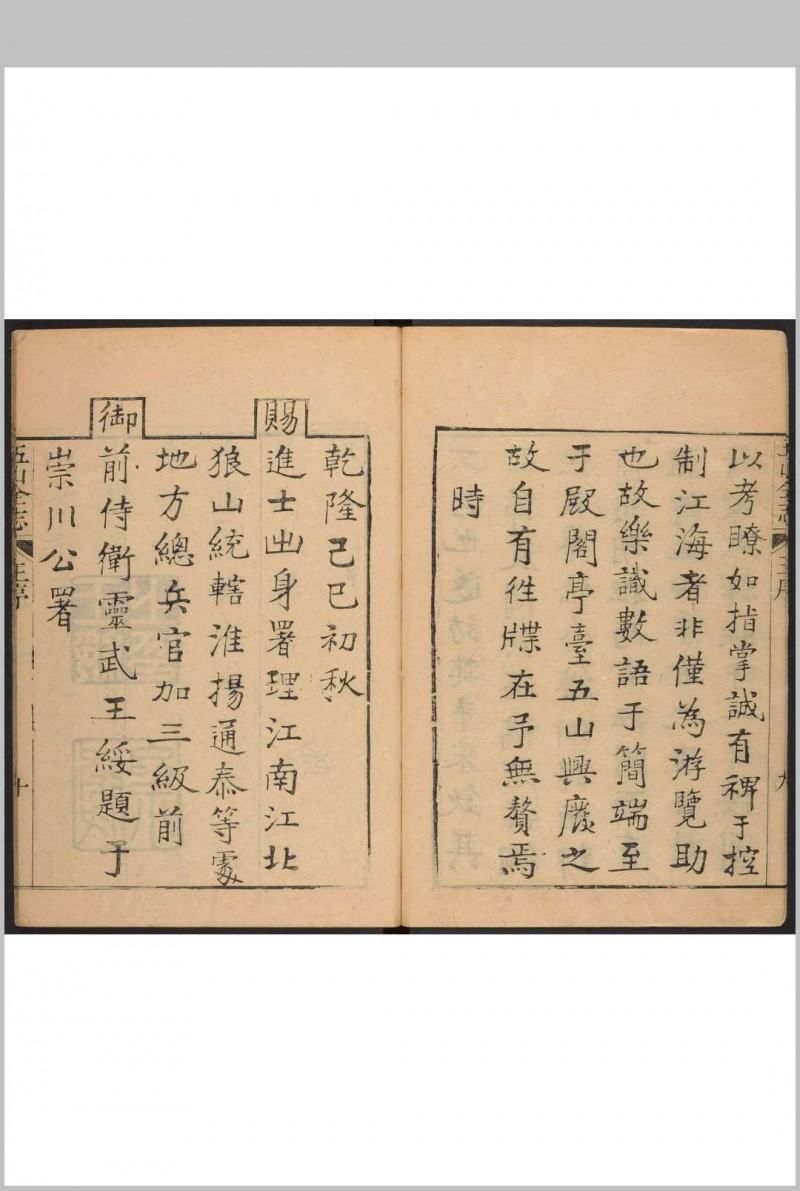 以考瞭如指掌誠有裨于控
制江海者非僅為游覽助
也故樂識數語于簡端至
于殿閣亭臺五山興廢之
故自有徃牒在予無贅焉
時
乾隆己巳初秋
賜
進士出身署理江南江北
狼山統轄淮揚通泰等處
地方總兵官加三級前
御
前侍衛靈武王綏題于
崇川公署
五山全志
王序
十